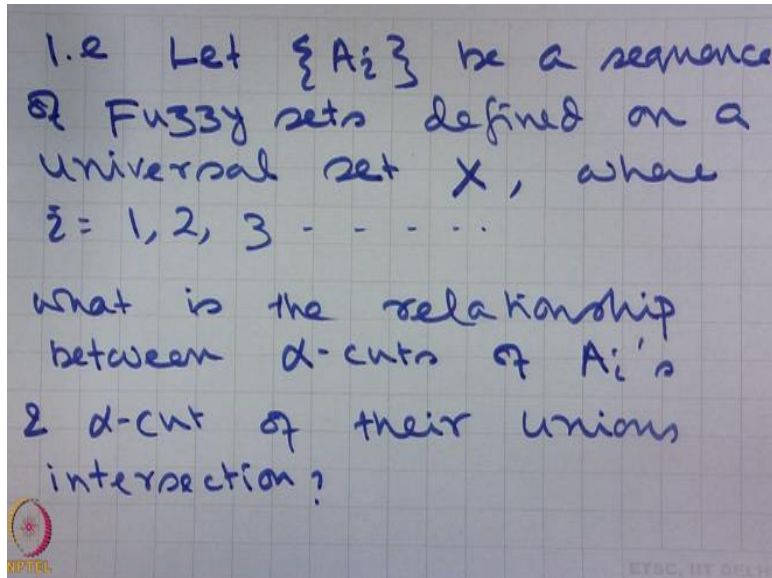 1.e Let {Ai} be a sequence
of Fuzzy sets defined on a
universal set X, where
i = 1, 2, 3 - - - - ..
what is the relationship
between α-cuts of Ai's
& α-cut of their unions
intersection?
NPTEL
ETSC, IIT DELHI